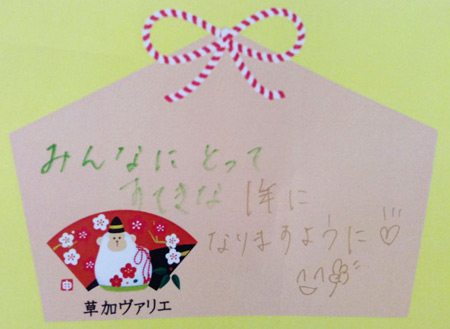 みんなにとって
すてきな1年に
なりますように♡
申
草加ヴァリエ